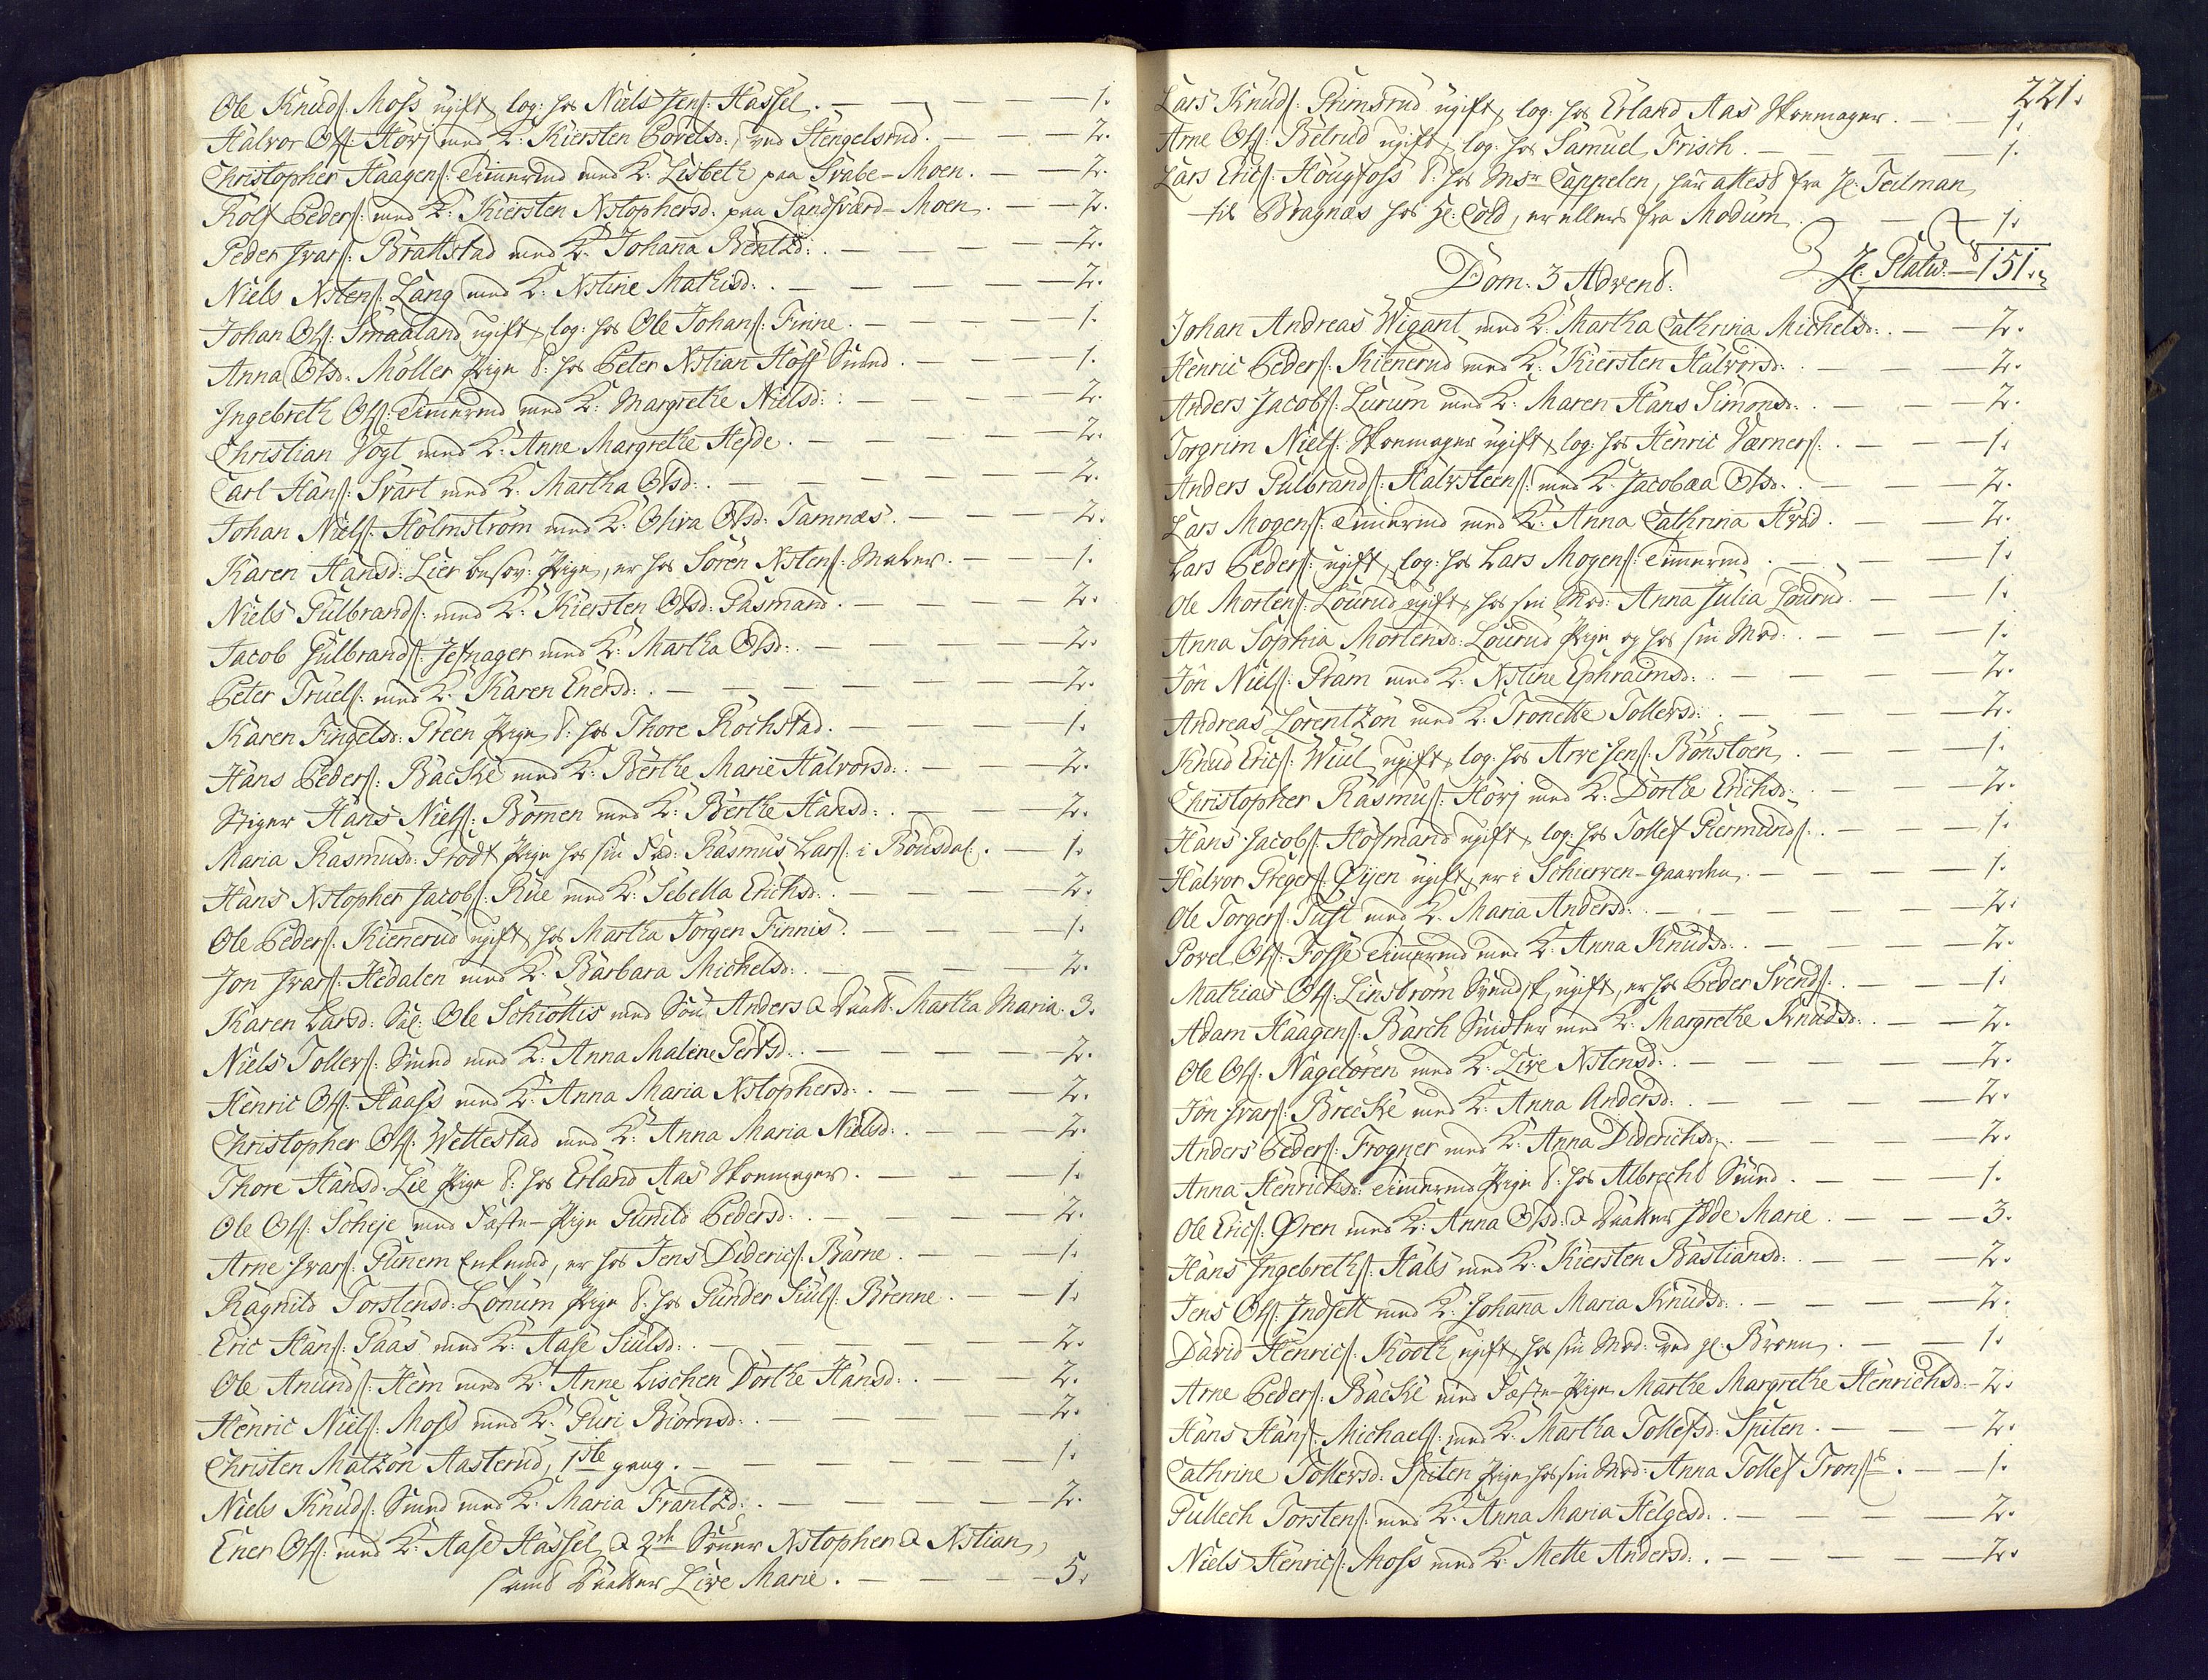 Ole Knuds: Moss ugift, log: hos Niels Jens: Hassel. — 1.
Halvor Ols: Hörj med K: Kiersten Povelsd: ved Hengelsrud. — 2.
Christopher Haagens: Timermd med K: Lisbeth paa Svabe-Moen. — 2.
Rolf Peders: med K: Kiersten Xstophersd: paa Sandsværd-Moen. — 2.
Peder Ivars: Brattstad med K: Johanna Bentzd: — 2.
Niels Xstens: Lang med K: Xstine Mathisd: — 2.
Johan Ols: Smaaland ugift, log: hos Ole Johans: Finne. — 1.
Anna Olsd: Möller Pige t: hos Peter Xstian Hoff Smed. — 1.
Ingebreth Ols: Timermd med K: Margrethe Nielsd: — 2.
Christian Vogt med K: Anne Margrethe Hejde. — 2.
Carl Hans: Svart med K: Martha Olsd: — 2.
Johan Niels: Holmström med K: Oliva Olsd: Tamnæs. — 2.
Karen Hansd: Lier besov: Pige, er hos Sören Xstens: Maler. — 1.
Niels Gulbrands: med K: Kiersten Olsd: Gasmand. — 2.
Jacob Gulbrands: Jesnager med K: Martha Olsd: — 2.
Peter Truels: med K: Karen Enersd: — 2.
Karen Fingelsd: Preen Pige t: hos Thore Rochstad. — 1.
Hans Peders: Backe med K: Berthe Marie Halvorsd: — 2.
Stiger Hans Niels: Bömen med K: Berthe Hansd: — 2.
Maria Rasmusd: Stodt Pige hos sin Fad: Rasmus Lars: i Rönsdal. — 1.
Hans Xstopher Jacobs: Rue med K: Sebella Erichsd: — 2.
Ole Peders: Kienerud ugift, hos Martha Jörgen Finnis. — 1.
Jon Ivars: Hedalen med K: Barbara Michelsd: — 2.
Karen Larsd: Sal: Ole Schiöttis med Sön Anders & Daatt: Martha Maria. 3.
Niels Tollers: Smed med K: Anna Malene Gertsd: — 2.
Henric Ols: Haass med K: Anna Maria Xstophersd: — 2.
Christopher Ols: Wettestad med K: Anna Maria Nielsd: — 2.
Thore Hansd: Lie Pige t: hos Erland Aas Skoemager. — 1.
Ole Ols: Scheje med Fæste-Pige Gunild Pedersd: — 2.
Arne Ivars: Gunem Enkemd, er hos Jens Diderics: Barne. — 1.
Ragnild Torstensd: Lönum Pige t: hos Gunder Siuls: Brenne. — 1.
Eric Hans: Gaas med K: Aase Siulsd: — 2.
Ole Anunds: Hem med K: Anne Lischen Dorthe Hansd: — 2.
Henric Niels: Moss med K: Guri Biörnsd: — 2.
Christen Matzön Aasterud, 1ste gang. — 1.
Niels Knuds: Smed med K: Maria Frantzd: — 2.
Ener Ols: med K: Aase Hassel & 2de Sönner Xstopher & Xstian,
samt Daatter Live Marie. — 5.
221.
Lars Knuds: Grimsrud ugift, log: hos Erland Aas Skoemager. — 1.
Arne Ols: Belrud ugift, log: hos Samuel Frisch. — 1.
Lars Erics: Hougfoss t: hos Msr Cappelen, har attest fra H: Teilman
til Bragnæs hos H: Cold, er ellers fra Modum. — 1.
H: Platou. — 151.
Dom. 3 Advent.
Johan Andreas Wigant med K: Martha Cathrina Michelsd: — 2.
Henric Peders: Kienerud med K: Kiersten Halvorsd: — 2.
Anders Jacobs: Lurum med K: Maren Hans Simonsd: — 2.
Torgrim Niels: Skoemager ugift, log: hos Henric Værners: — 1.
Anders Gulbrands: Halvsteens: med K: Jacobæa Olsd: — 2.
Lars Mogens: Timermd med K: Anna Cathrina Hvid. — 2.
Lars Peders: ugift, log: hos Lars Mogens: Timermd. — 1.
Ole Mortens: Lourud ugift, hos sin Mod: Anna Julia Lourud. — 1.
Anna Sophia Mortensd: Lourud Pige og hos sin Mod: — 1.
Jön Niels: Pram med K: Xstine Ephraimsd: — 2.
Andreas Lorentzön med K: Tronette Tollersd: — 2.
Knud Erics: Wiul ugift, log: hos Arve Jens: Bönstoen. — 1.
Christopher Rasmus: Hörj med K: Dorthe Erichsd: — 2.
Hans Jacobs: Hofmand ugift, log: hos Tollef Germunds: — 1.
Halvor Gregers: Öijen ugift, er i Schierven-Gaarden. — 1.
Ole Torgers: Tufft med K: Maria Andersd: — 2.
Povel Ols: Fosse Timermd med K: Anna Knudsd: — 2.
Mathias Ols: Linström Svendsk, ugift, er hos Peder Svends: — 1.
Adam Haagens: Barch Snidker med K: Margrethe Knudsd: — 2.
Ole Ols: Nagelören med K: Live Xstensd: — 2.
Jön Ivars: Brecke med K: Anna Andersd: — 2.
Anders Peders: Frogner med K: Anna Diderichsd: — 2.
Anna Henrichsd: Timermd Pige t: hos Albrecht Smed. — 1.
Ole Erics: Øren med K: Anna Olsd: & Daatter Idde Marie. — 3.
Hans Ingebreths: Hals med K: Kiersten Bastiansd: — 2.
Jens Ols: Indsett med K: Johana Maria Knudsd: — 2.
David Henrics: Kooth ugift, hos sin Mod: ved gl: Broen. — 1.
Arne Peders: Backe med Fæste-Pige Marthe Margrethe Henrichsd: — 2.
Hans Hans: Michaels: med K: Martha Tollefsd: Spiten. — 2.
Cathrine Tollersd: Spiten Pige, hos sin Mod: Anna Tollef Trons: — 1.
Gullech Torstens: med K: Anna Maria Helgesd: — 2.
Niels Henrics: Moss med K: Mette Andersd: — 2.